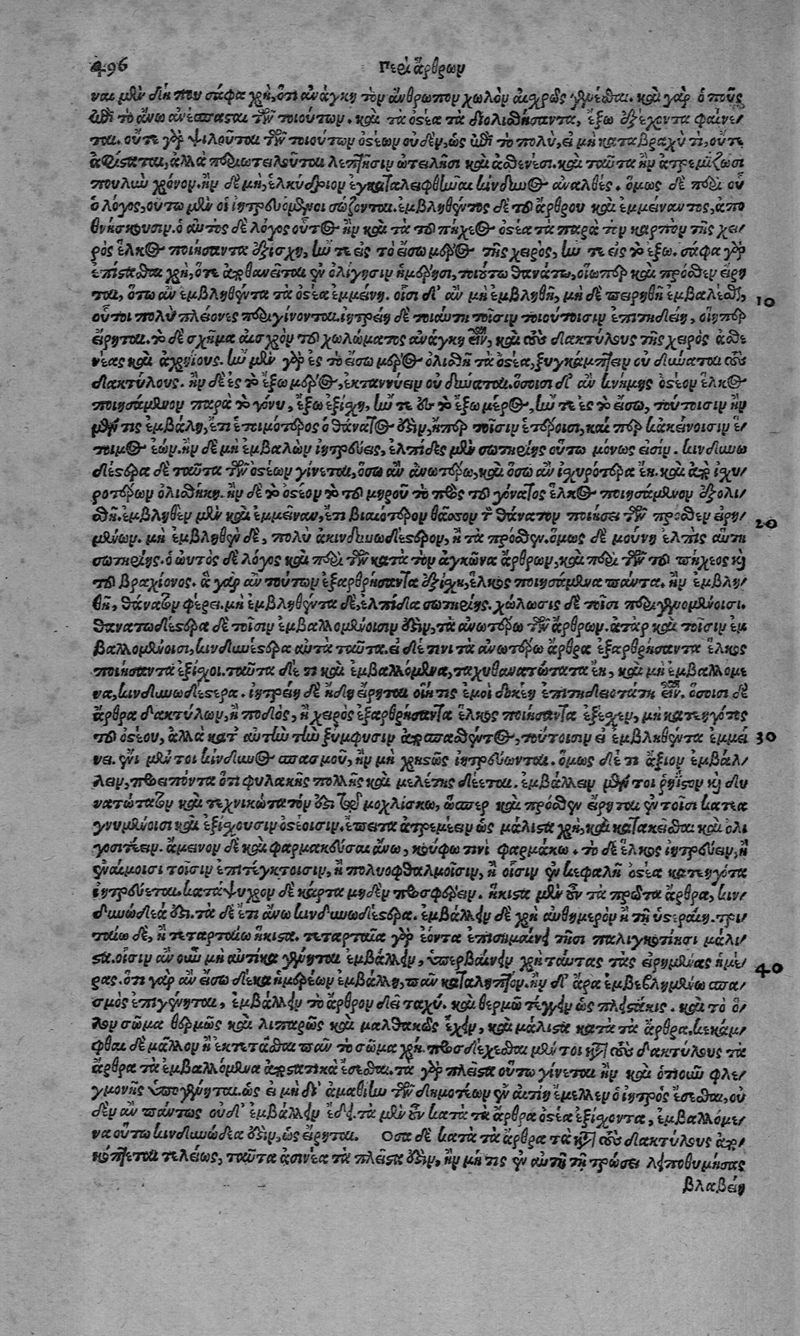 496 Περὶ ἄρθρων
ναι μὲν δή που σάφα χρὴ, ὅτι ἀνάγκη τὸν ἄνθρωπον χωλὸν αἰσχρῶς γενέσθαι. καὶ γὰρ ὁ ποῦς
ἐπὶ τὸ ἄνω ἀνέσπασται τῶν τοιούτων. καὶ τὰ ὀστέα τὰ διολισθήσαντα, ἔξω ἐξέχοντα φαίνε
ται. οὔτε γὰρ ψιλοῦται τῶν τοιούτων ὀστέων οὐδὲν, ὡς ἐπὶ τὸ πολὺ, εἰ μὴ κατὰ βραχύ τι, οὔτε
ἀφίσταται, ἀλλὰ περιωτειλοῦται λεπτῇσιν ὠτειλῇσι καὶ ἀσθενέσι. καὶ ταῦτα ἢν ἀτρεμίζωσι
πουλὺν χρόνον. ἢν δὲ μὴ, ἑλκύδριον ἐγκαταλειφθῆναι κίνδυνος ἀναλθές. ὅμως δὲ περὶ οὗ
ὁ λόγος, οὕτω μὲν οἱ ἰητρευόμενοι σώζονται. ἐμβληθέντος δὲ τοῦ ἄρθρου καὶ ἐμμείναντος, ἀπο
θνήσκουσιν. ὁ αὐτὸς δὲ λόγος οὗτος ἢν καὶ τὰ τοῦ πήχεος ὀστέα τὰ παρὰ τὸν καρπὸν τῆς χει
ρὸς ἕλκος ποιήσαντα ἐξίσχῃ, ἤν τε εἰς τὸ εἴσω μέρος τῆς χειρὸς, ἤν τε εἰς τὸ ἔξω. σάφα γὰρ
ἐπίστασθαι χρὴ, ὅτι ἀποθανεῖται ἐν ὀλίγῃσιν ἡμέρῃσι, τοιούτῳ θανάτῳ, οἵῳπερ καὶ πρόσθεν εἴρη
ται, ὅτῳ ἂν ἐμβληθέντα τὰ ὀστέα ἐμμένῃ. οἷσι δ' ἂν μὴ ἐμβληθῇ, μὴ δὲ πειρηθῇ ἐμβάλλεσθαι, 10
οὗτοι πολὺ πλέονες περιγίνονται. ἰητρείη δὲ τοιαύτη τοῖσιν τοιούτοισιν ἐπιτηδείη, οἵηπερ
εἴρηται. τὸ δὲ σχῆμα αἰσχρὸν τοῦ χωλώματος ἀνάγκη εἶναι, καὶ τοὺς δακτύλους τῆς χειρὸς ἀσθε
νέας καὶ ἀχρήϊους. ἢν μὲν γὰρ ἐς τὸ εἴσω μέρος ὀλίσθῃ τὰ ὀστέα, ξυγκάμπτειν οὐ δύναται τοὺς
δακτύλους. ἢν δὲ ἐς τὸ ἔξω μέρος, ἐκτανύειν οὐ δύναται. ὅσοισι δ' ἂν κνήμης ὀστέον ἕλκος
ποιησάμενον παρὰ τὸ γόνυ, ἔξω ἐξίσχῃ, ἤν τε ἐς τὸ ἔξω μέρος, ἤν τε ἐς τὸ εἴσω, τούτοισιν ἢν
μέν τις ἐμβάλῃ, ἔτι ἑτοιμότερος ὁ θάνατός ἐστιν, ἤπερ τοῖσιν ἑτέροισι, καί περ κἀκείνοισιν ἕ
τοιμος ἐών. ἢν δὲ μὴ ἐμβαλὼν ἰητρεύῃς, ἐλπίδες μὲν σωτηρίης οὕτω μόνως εἰσίν. κινδυνω
δέστερα δὲ ταῦτα τῶν ὀστέων γίνεται, ὅσῳ ἂν ἀνωτέρω, καὶ ὅσῳ ἂν ἰσχυρότερα ἔῃ. καὶ ἀπ' ἰσχυ
ροτέρων ὀλισθήκῃ. ἢν δὲ τὸ ὀστέον τὸ τοῦ μηροῦ τὸ πρὸς τοῦ γόνατος ἕλκος ποιησάμενον ἐξολί
σθῃ. ἐμβληθὲν μὲν καὶ ἐμμεῖναν, ἔτι βιαιότερον θᾶσσον τὸν θάνατον ποιήσει τῶν πρόσθεν εἰρη 20
μένων. μὴ ἐμβληθὲν δὲ, πολὺ ἀκινδυνωδέστερον, ἢ τὰ πρόσθεν. ὅμως δὲ μούνη ἐλπὶς αὕτη
σωτηρίης. ὁ ὡυτὸς δὲ λόγος καὶ περὶ τῶν κατὰ τὸν ἀγκῶνα ἄρθρων, καὶ περὶ τῶν τοῦ πήχεος καὶ
τοῦ βραχίονος. ἃ γὰρ ἂν τούτων ἐξαρθρήσαντα ἐξίσχῃ, ἕλκος ποιησάμενα πάντα. ἢν ἐμβλη
θῇ, θάνατον φέρει. μὴ ἐμβληθέντα δὲ, ἐλπίδα σωτηρίης. χώλωσις δὲ τοῖσι περιγενομένοισι.
θανατωδέστερα δὲ τοῖσιν ἐμβαλλομένοισιν ἐστιν, τὰ ἀνωτέρω τῶν ἄρθρων. ἀτὰρ καὶ τοῖσιν ἐμ
βαλλομένοισι, κινδυνωδέστερα αὐτὰ ταῦτα. εἰ δέ τινι τὰ ἀνωτέρω ἄρθρα ἐξαρθρήσαντα ἕλκος
ποιήσαντα ἐξίσχοι. ταῦτα δέ τι καὶ ἐμβαλλόμενα, ταχυθανατώτατα ἔῃ, καὶ μὴ ἐμβαλλόμε
να, κινδυνωδέστερα. ἰητρείη δὲ ἤδη εἴρηται οἵη τις ἐμοὶ δοκέει ἐπιτηδειοτάτη εἶναι. ὅσοισι δὲ
ἄρθρα δακτύλων, ἢ ποδὸς, ἢ χειρὸς ἐξαρθρήσαντα ἕλκος ποιήσαντα ἐξέσχεν, μὴ κατεηγότος
τοῦ ὀστέου, ἀλλὰ κατ' αὐτὴν τὴν ξύμφυσιν ἀποσπασθέντος, τούτοισιν εἰ ἐμβληθέντα ἐμμεί 30
νει. ἔνι μέν τοι κίνδυνος σπασμοῦ, ἢν μὴ χρηστῶς ἰητρεύωνται. ὅμως δέ τι ἄξιον ἐμβάλ
λειν, προειπόντα ὅτι φυλακῆς πολλῆς καὶ μελέτης δέεται. ἐμβάλλειν μέν τοι ῥήϊστον καὶ δυ
νατώτατον καὶ τεχνικώτατόν ἐστι τῷ μοχλίσκῳ, ὥσπερ καὶ πρόσθεν εἴρηται ἐν τοῖσι κατεα
γνυμένοισι καὶ ἐξίσχουσιν ὀστέοισιν. ἔπειτα ἀτρεμέειν ὡς μάλιστα χρὴ, καὶ κατακεῖσθαι καὶ ὀλι
γοσιτέειν. ἄμεινον δὲ καὶ φαρμακεῦσαι ἄνω, κούφῳ τινὶ φαρμάκῳ. τὸ δὲ ἕλκος ἰητρεύειν, ἢ
ἐναίμοισι τοῖσιν ἐπιτέγκτοισιν, ἢ πολυοφθάλμοισιν, ἢ οἷσιν ἐν κεφαλῇ ὀστέα κατεηγότα
ἰητρεύεται. κατάψυχρον δὲ κάρτα μηδὲν προσφέρειν. ἥκιστα μὲν οὖν τὰ πρῶτα ἄρθρα, κιν
δυνώδεά ἐστι. τὰ δὲ ἔτι ἄνω κινδυνωδέστερα. ἐμβάλλειν δὲ χρὴ αὐθήμερον ἢ τῇ ὑστεραίῃ. τρι
ταίῳ δὲ, ἢ τεταρταίῳ ἥκιστα. τεταρταῖα γὰρ ἐόντα ἐπισημαίνει τῇσι παλιγκοτίῃσι μάλι
στα. οἷσιν ἂν οὖν μὴ αὐτίκα γένηται ἐμβάλλειν, ὑπερβαίνειν χρὴ ταύτας τὰς εἰρημένας ἡμέ 40
ρας. ὅτι γὰρ ἂν εἴσω δέκα ἡμερέων ἐμβάλλῃς, πᾶν καταληπτόν. ἢν δ' ἄρα ἐμβεβλημένῳ σπα
σμὸς ἐπιγένηται, ἐμβάλλειν τὸ ἄρθρον δεῖ ταχύ. καὶ θερμῷ τέγγειν ὡς πλειστάκις. καὶ τὸ ὅ
λον σῶμα θερμῶς καὶ λιπαρῶς καὶ μαλθακῶς ἔχειν, καὶ μάλιστα κατὰ τὰ ἄρθρα. κεκάμ
φθαι δὲ μᾶλλον ἢ ἐκτετάσθαι πᾶν τὸ σῶμα χρή. προσδέχεσθαι μέν τοι κατὰ τοὺς δακτύλους τὰ
ἄρθρα τὰ ἐμβαλλόμενα ἀποστατικὰ ἔσεσθαι. τὰ γὰρ πλεῖστα οὕτω γίνεται ἢν καὶ ὁτιοῦν φλε
γμονῆς ὑπογένηται. ὡς εἰ μὴ δι' ἀμαθίην τῶν δημοτέων ἐν αἰτίῃ ἔμελλεν ὁ ἰητρὸς ἔσεσθαι, οὐ
δὲν ἂν πάντως οὐδ' ἐμβάλλειν ἔδει. τὰ μὲν οὖν κατὰ τὰ ἄρθρα ὀστέα ἐξίσχοντα, ἐμβαλλόμε
να οὕτω κινδυνώδεά ἐστιν, ὡς εἴρηται. Ὅσα δὲ κατὰ τὰ ἄρθρα τὰ κατὰ τοὺς δακτύλους ἀπο
κόπτεται τελείως, ταῦτα ἀσινέα τὰ πλεῖστά ἐστιν, ἢν μή τις ἐν αὐτῇ τῇ τρώσει λειποθυμήσας
βλαβείη